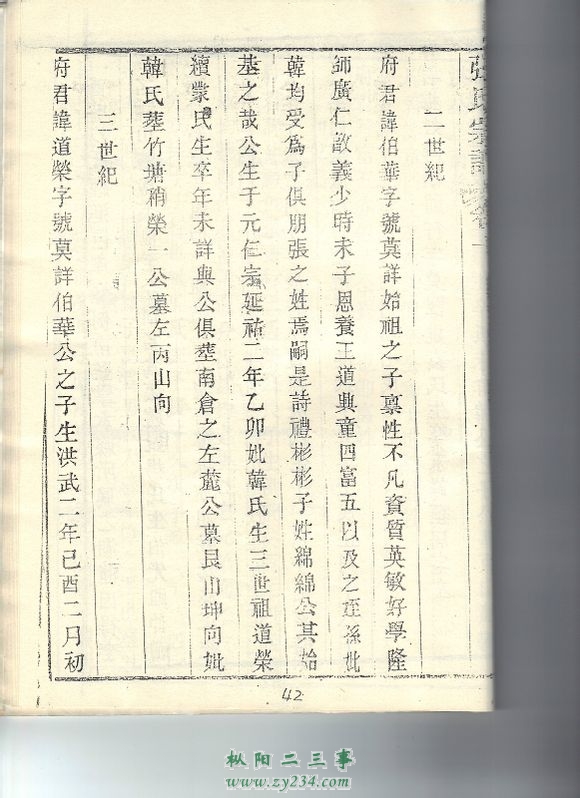 張氏宗譜卷一
二世紀
府君諱伯華字號莫詳始祖之子稟性不凡資質英敏好學隆
師廣仁敢義少時未子恩養王道興童四富五以及之侄孫妣
韓均受爲子俱朋張之姓焉嗣是詩禮彬彬子姓綿綿公其始
基之哉公生于元仁宗延祐二年乙卯妣韓氏生三世祖道榮
續蒙氏生卒年未詳與公俱塟南倉之左麓公墓艮山坤向妣
韓氏塟竹塘稍榮一公墓左丙山向
三世紀
府君諱道榮字號莫詳伯華公之子生洪武二年己酉二月初
42
枞阳二三事
www.zy234.com